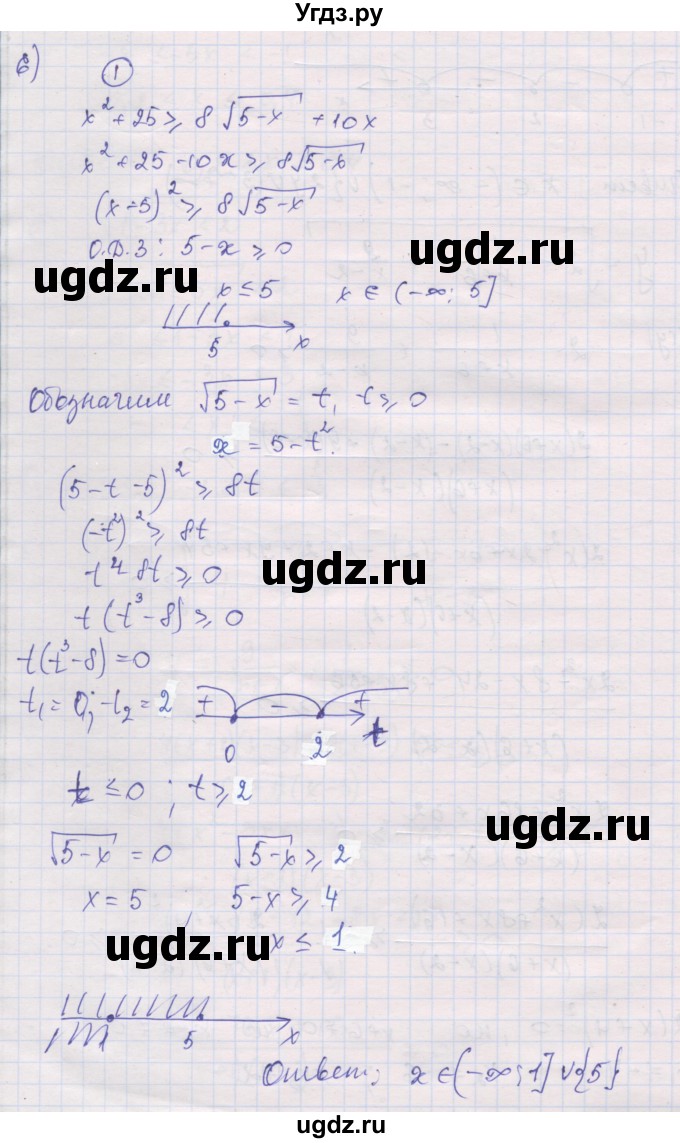 Угдз.ру
б) 1
x² + 25 ⩾ 8√5-x + 10x
x² + 25 - 10x ⩾ 8√5-x
(x-5)² ⩾ 8√5-x
О.Д.З: 5-x ⩾ 0
ugdz.ru
ugdz.ru
x ≤ 5 x ∈ (-∞; 5]
5 x
Обозначим √5-x = t, t ⩾ 0
x = 5-t².
(5-t-5)² ⩾ 8t
(-t²)² ⩾ 8t
ugdz.ru
t⁴-8t ⩾ 0
t(t³-8) ⩾ 0
t(t³-8) = 0
t₁ = 0; t₂ = 2 + - +
0 2 t
t ≤ 0 ; t ⩾ 2
ugdz.ru
√5-x = 0 √5-x ⩾ 2
x = 5 ; 5-x ⩾ 4
ugdz.ru
x ≤ 1.
1 5 x
Ответ: x ∈ (-∞; 1] ∪ {5}
ugdz.ru
Угдз.ру